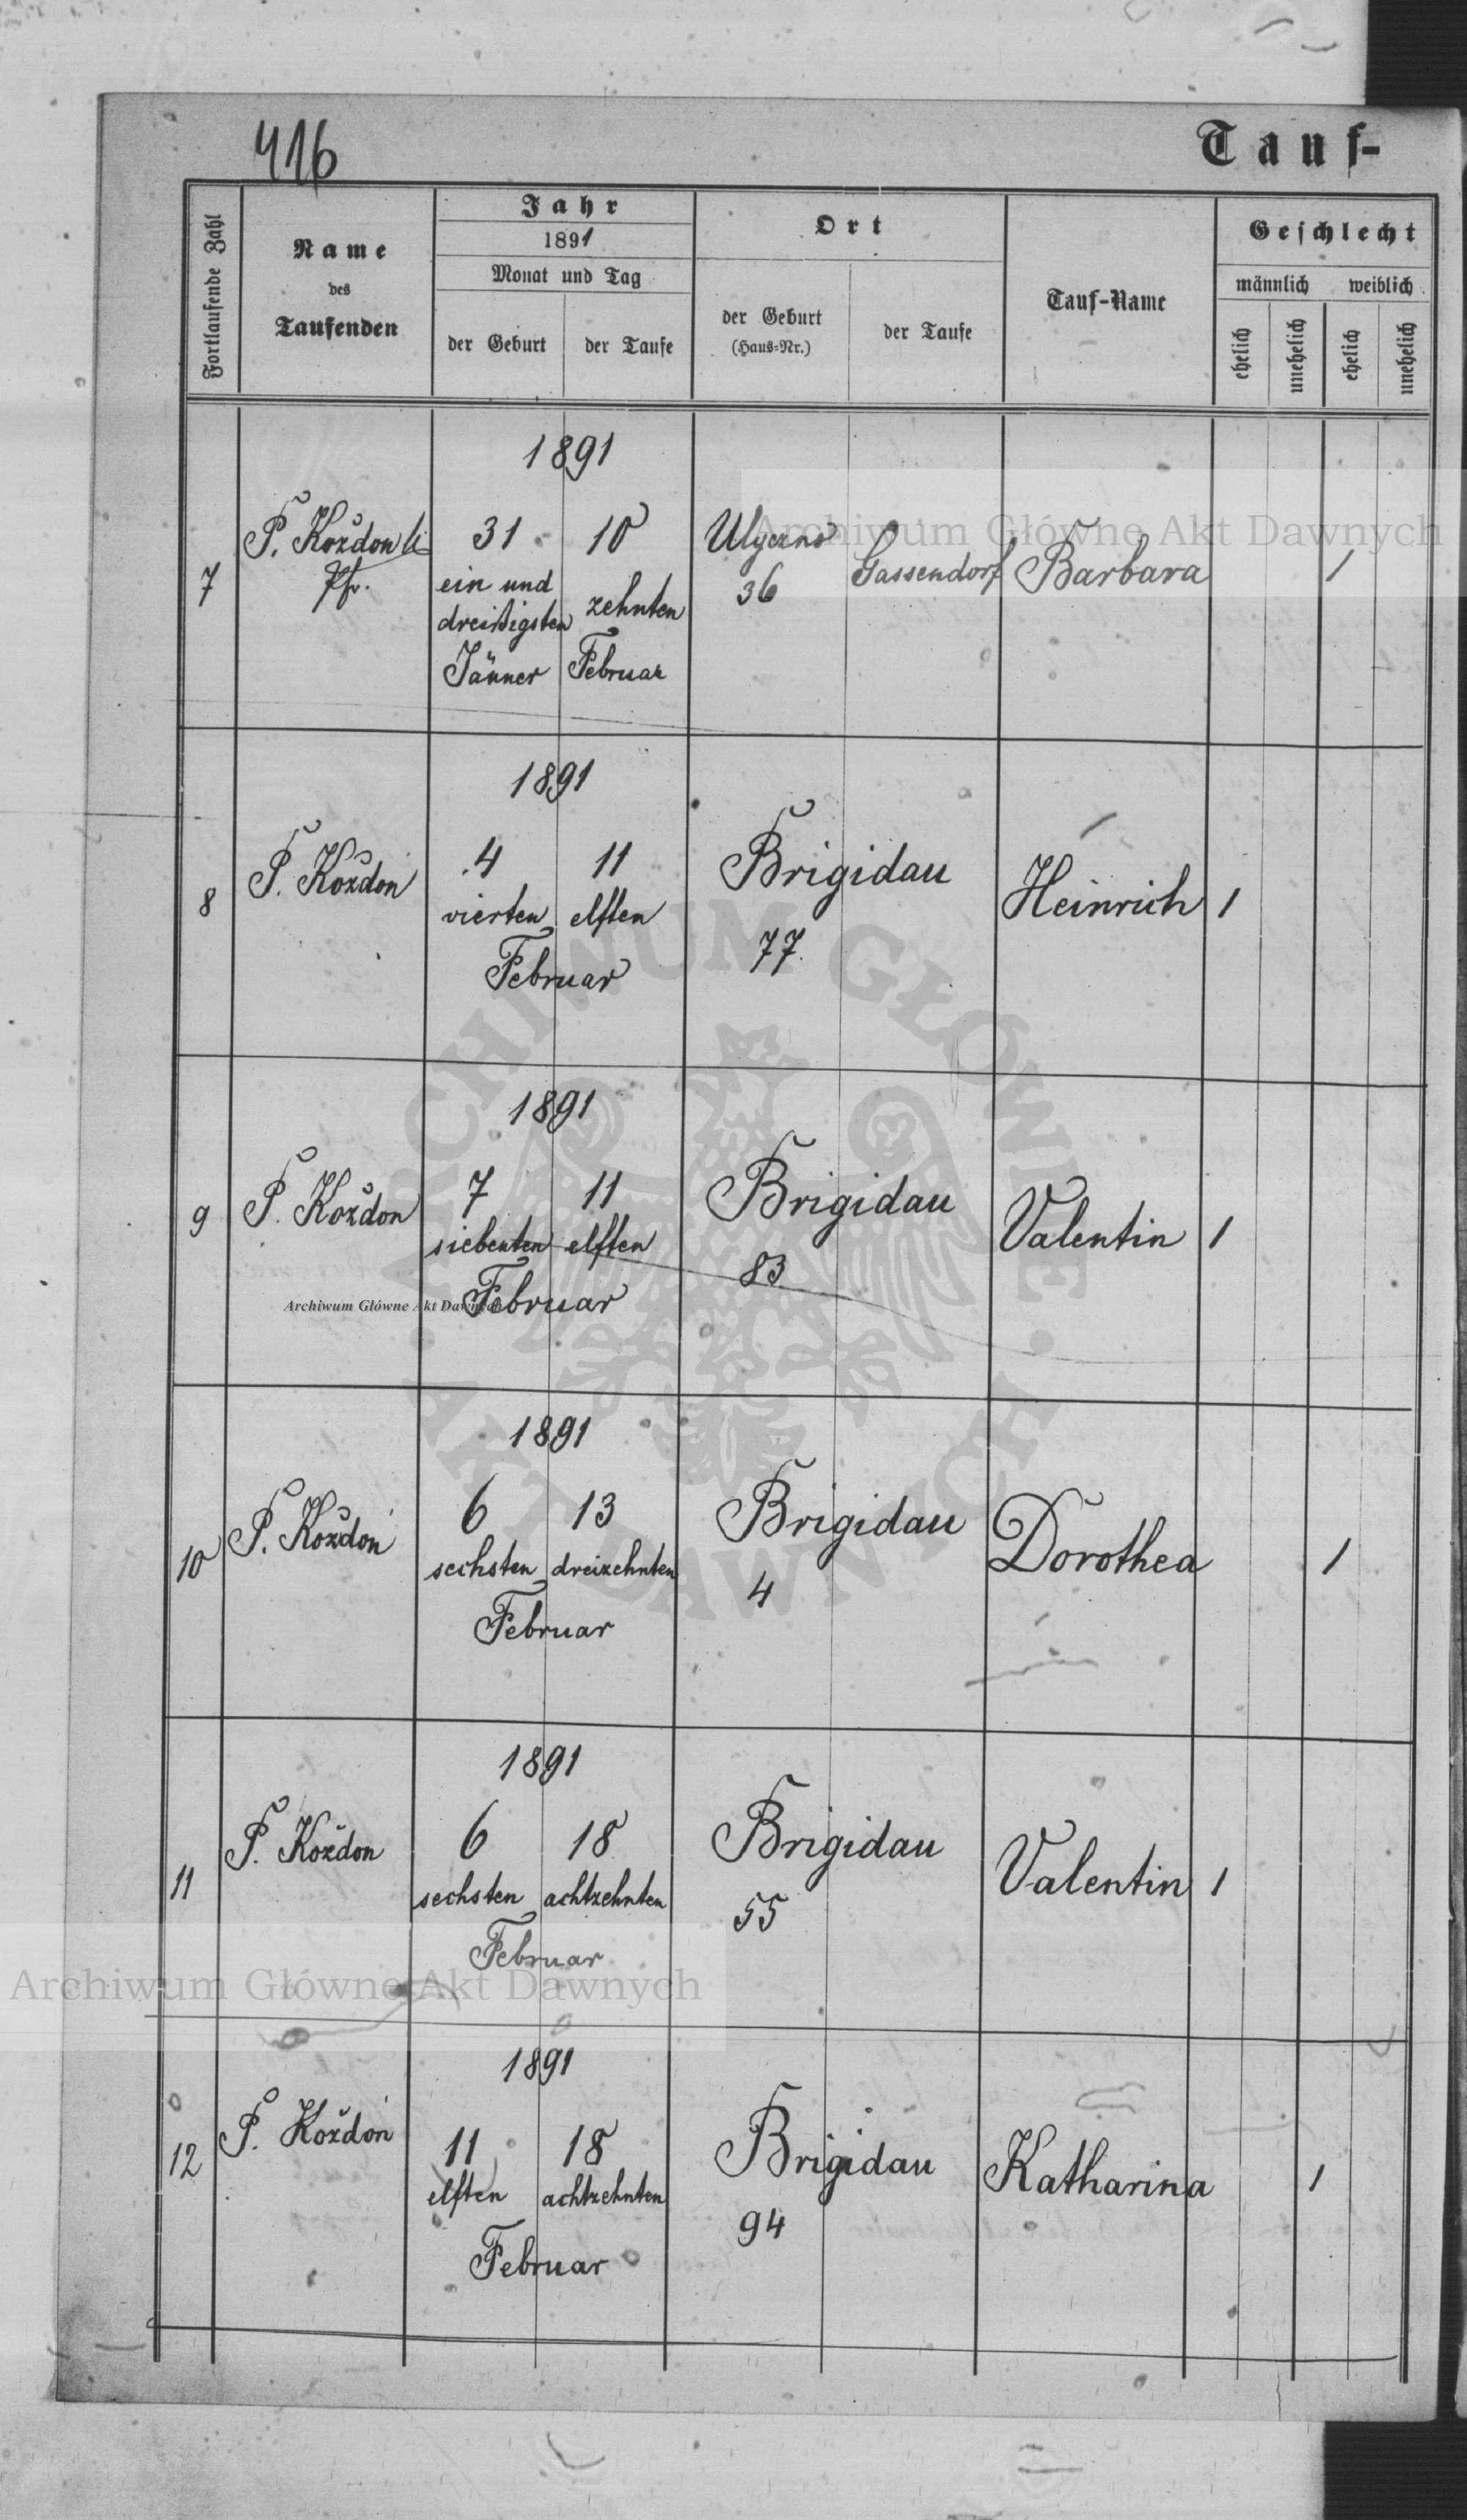 416
Tauf-
Fortlaufende Zahl
Name
des
Taufenden
Jahr
1891
Monat und Tag
der Geburt
der Taufe
Ort
der Geburt
(Haus-Nr.)
der Taufe
Tauf-Name
Geschlecht
männlich
weiblich
ehelich
unehelich
ehelich
unehelich
1891
7
P. Koždon
Pfr.
31
10
ein und
dreißigsten
zehnten
Jänner
Februar
Ulyczno
36
Gassendorf
Barbara
1
1891
8
P. Koždon
4
11
vierten
elften
Februar
Brigidau
77.
Heinrich
1
1891
9
P. Koždon
7
11
siebenten
elften
Februar
Brigidau
83
Valentin
1
1891
10
P. Koždon
6
13
sechsten
dreizehnten
Februar
Brigidau
4
Dorothea
1
1891
11
P. Koždon
6
18
sechsten
achtzehnten
Februar
Brigidau
55
Valentin
1
1891
12
P. Koždon
11
18
elften
achtzehnten
Februar
Brigidau
94
Katharina
1
Archiwum Główne Akt Dawnych
ARCHIWUM GŁÓWNE
AKT DAWNYCH
Archiwum Główne Akt Dawnych
Archiwum Główne Akt Dawnych